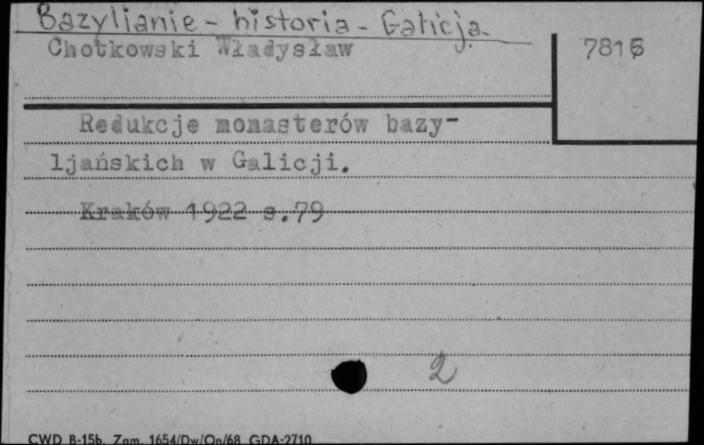 Bazylianie - historia - Galicja.
Chotkowski Władysław
7816
Redukcje monasterów bazy-
ljańskich w Galicji.
Kraków 1922 s.79
2
CWD B-15b. Zam. 1654/Dw/On/68 GDA-2710